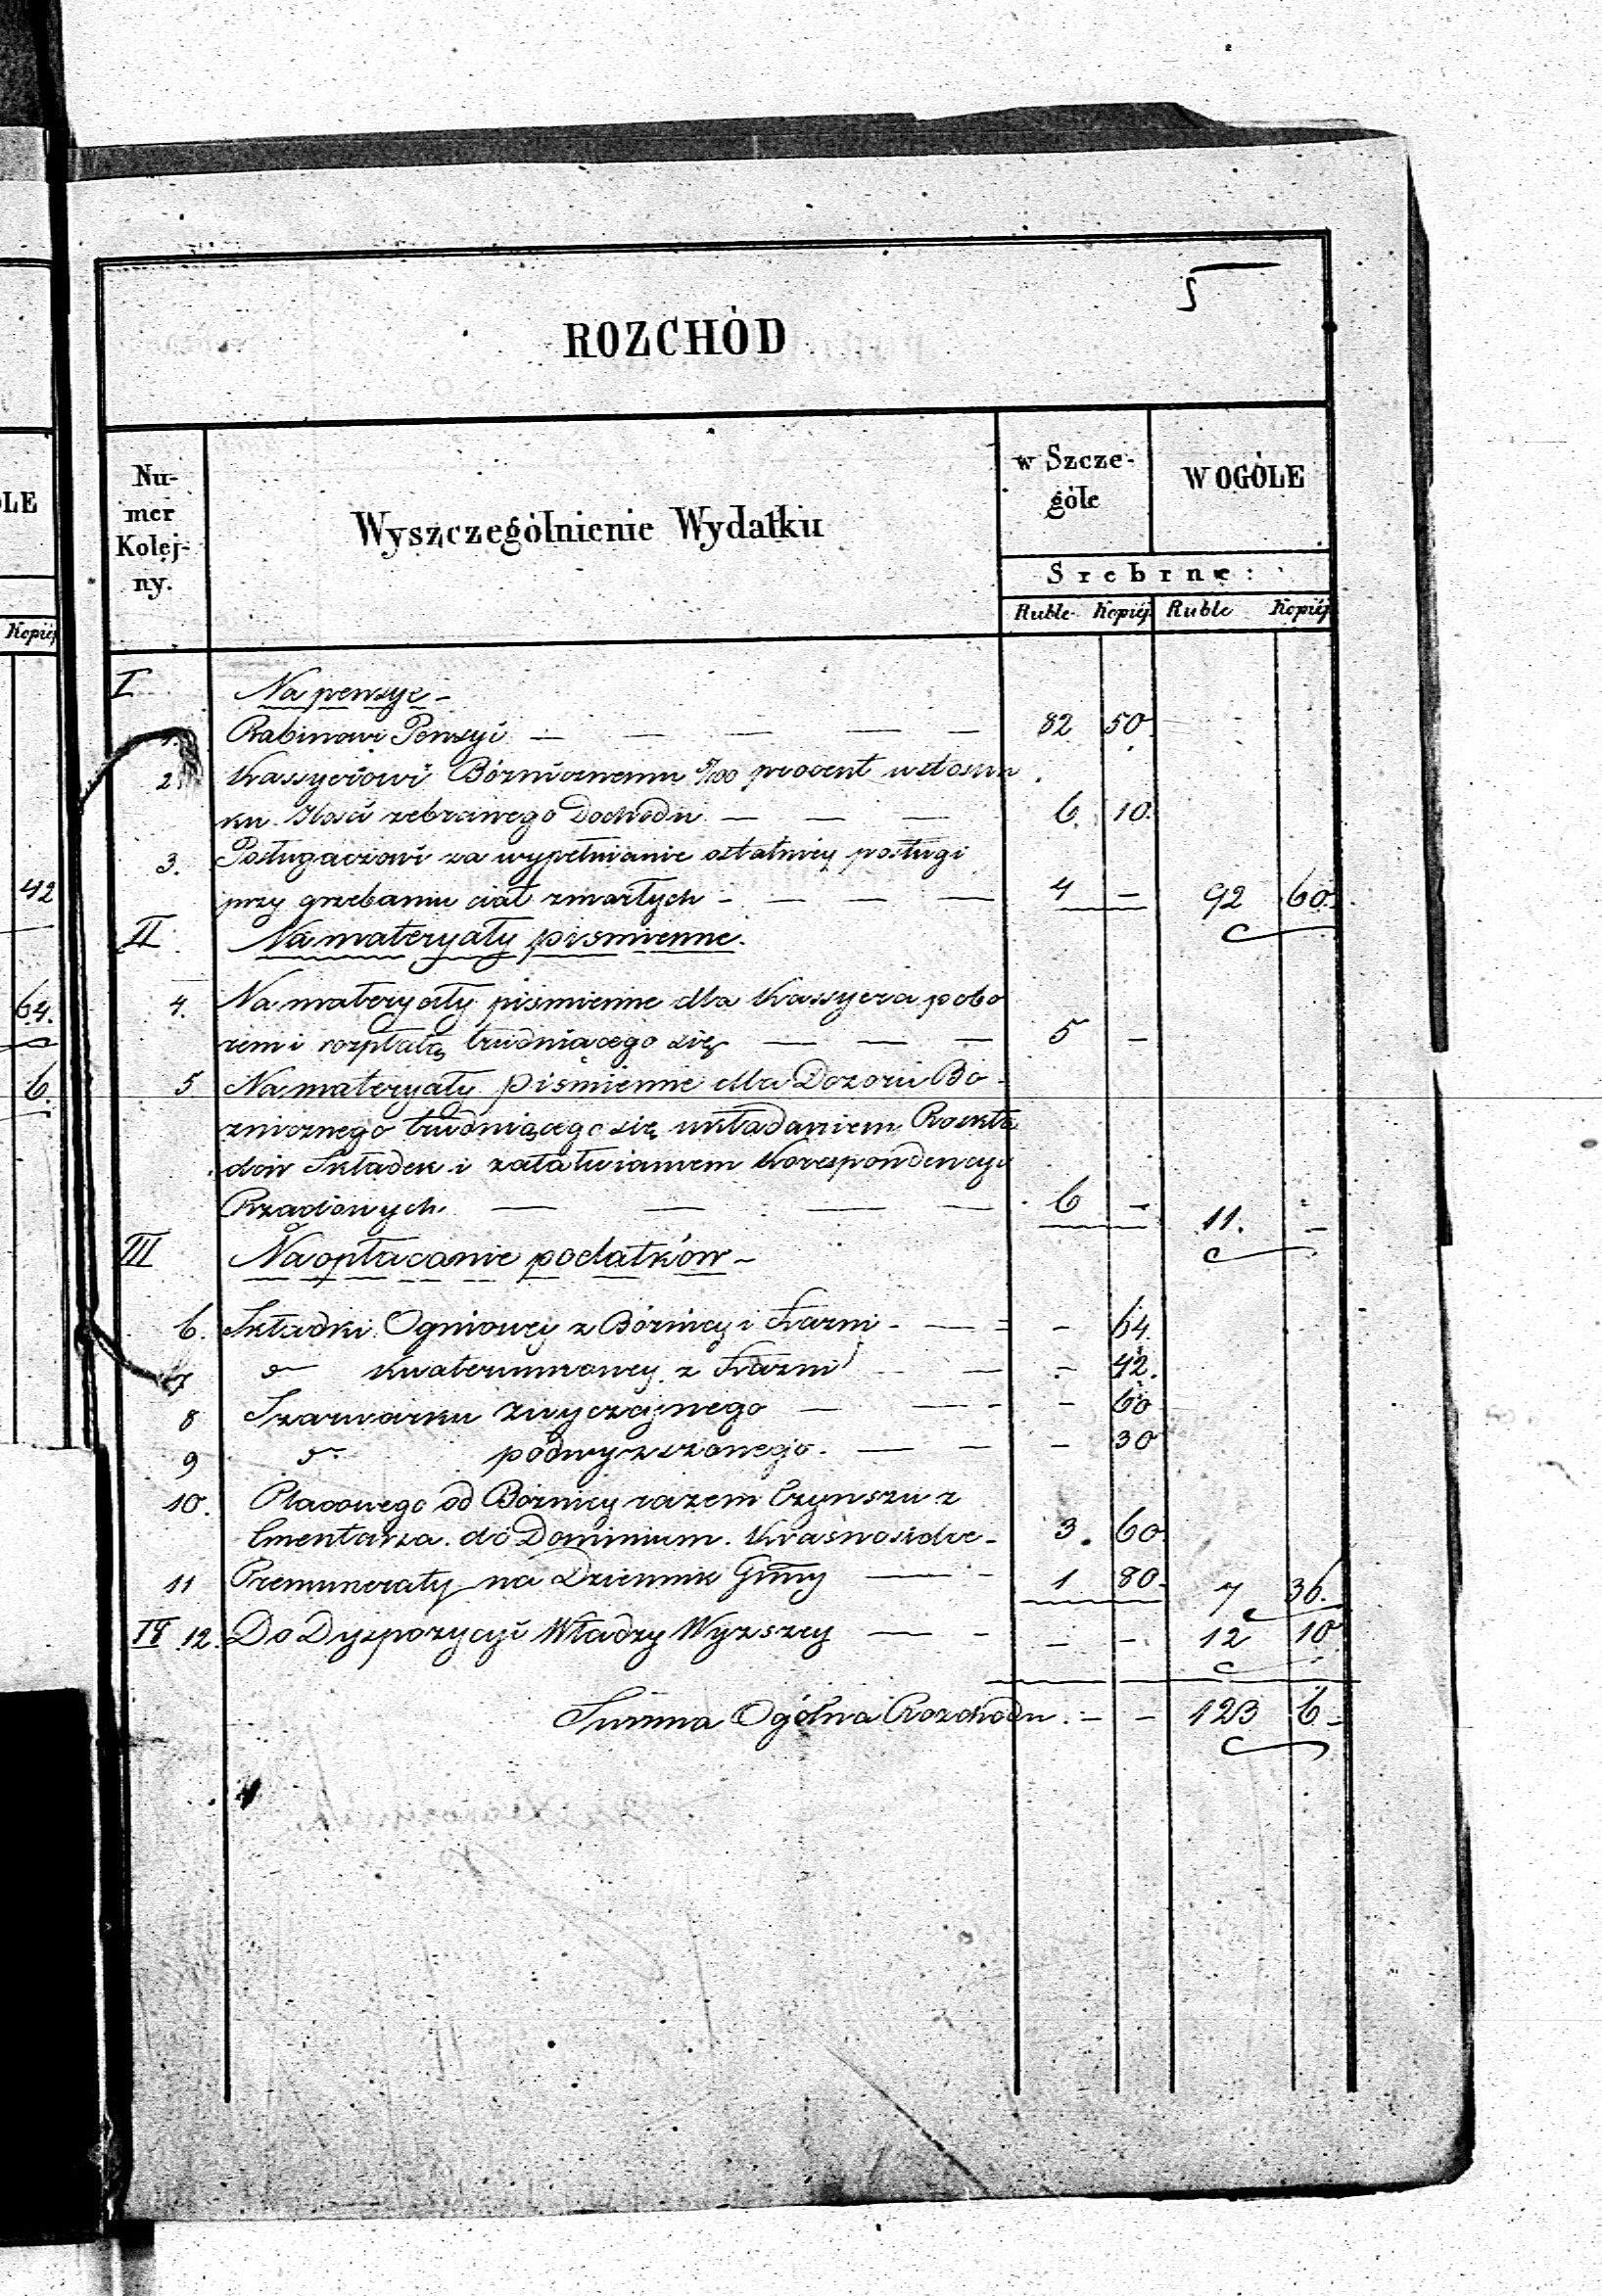 5
ROZCHÓD
LE
Nu-
mer
Kolej-
ny.
Wyszczególnienie Wydatku
w Szcze-
góle
W OGÓLE
Srebrne:
Kopiej
Ruble Kopiej Ruble Kopiej
I Na pensye -
1. Rabinowi Pensyi — — — — — 82 50
2 Kassyerowi Bóżnicznemu 5/100 procent w stosun
ku Ilości zebranego Dochodu — — — 6. 10.
3. Posługaczowi za wypełnianie ostatniey posługi
42
przy grzebaniu ciał zmarłych - — — — 4 — 92 60.
II Na materyały pismienne.
64.
4. Na materyały pismienne dla Kassyera pobo
rem i rozpłatą trudniącego się — — — 5 —
6.
5 Na materyały pismienne dla Dozoru Bó-
zniczego trudniącego się układaniem Rozkła
dów Składek i załatwianiem Korespondencyi
Rządowych — — — — 6 — 11. —
III Na opłacanie podatków -
6. Składki Ogniowey z Bóżnicy i Łazni - — = - 64.
7 " Kwaterunkowey z Łazni — - 42.
8 Szarwarku zwyczajnego — — - - 60
9 " podwyższonego. — — - 30
10. Placowego od Bóżnicy razem Czynszu z
Cmentarza do Dominium Krasnosielc - 3. 60
11 Prenumeraty na Dziennik Gubny — - 1 80. 7 36.
IV 12. Do Dyspozycyi Władzy Wyzszey — - — — 12 10
Summa Ogólna Rozchodu. - — 123 6 -